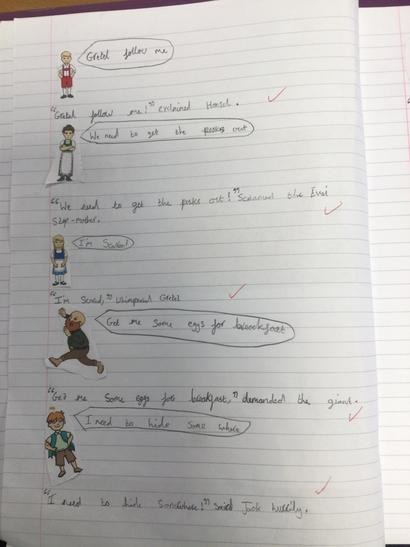 Gretel follow me
"Gretel follow me!" exclaimed Hansel.
We need to get the out
"We need to get the out!" Screamed the Evil
Step-mother.
I'm Scared
"I'm Scared," whimpered Gretel
Get me some eggs for breakfast
"Get me some eggs for breakfast," demanded the giant.
I need to hide some where
"I need to hide somewhere!" said Jack